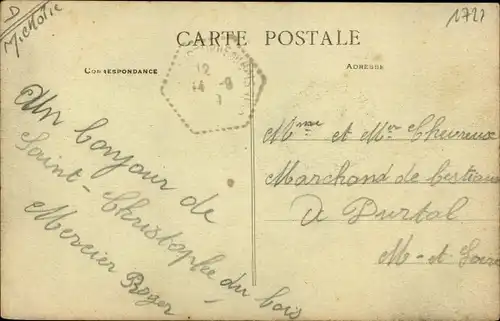 D
Michotie
1727
CARTE POSTALE
CORRESPONDANCE
ADRESSE
12
14 - 9
Un bonjour de
Saint-Christophe du bois
Mercier Roger
Mme et Mer Chevreux
Marchand de bestiaux
A Durtal
M-et Loire